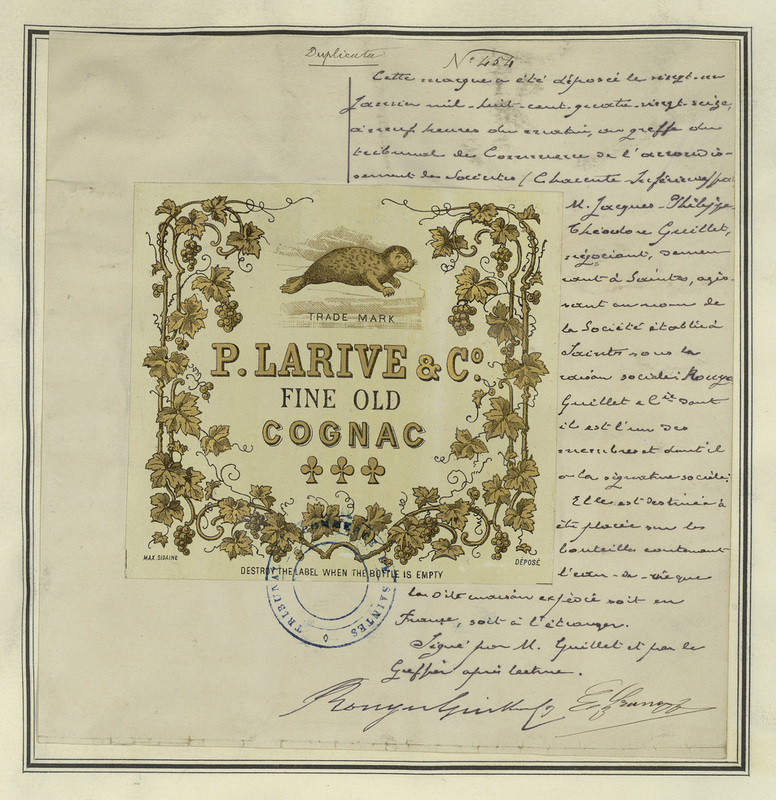 Duplicata
N° 454
Cette marque a été déposée le vingt-un
Janvier mil-huit-cent-quatre-vingt-seize,
à neuf heures du matin, au greffe du
tribunal de Commerce de l'arrondis-
sement de Saintes (Charente-Inférieure) par
M. Jacques-Philippe-
Théodore Guillet,
négociant, demeu
rant à Saintes, agis-
sant au nom de
la Société établie à
Saintes sous la
raison sociale: Rouyer
Guillet & Cie dont
il est l'un des
membres et dont il
a la signature sociale.
Elle est destinée à
être placée sur les
bouteilles contenant
l'eau-de-vie que
la dite maison expédie soit en
France, soit à l'étranger.
Signé par M. Guillet et par le
Greffier après lecture.
Rouyer Guillet
TRADE MARK
P. LARIVE & Co.
FINE OLD
COGNAC
MAX. SIDAINE
DÉPOSÉ
DESTROY THE LABEL WHEN THE BOTTLE IS EMPTY
TRIBUNAL COMMERCE SAINTES